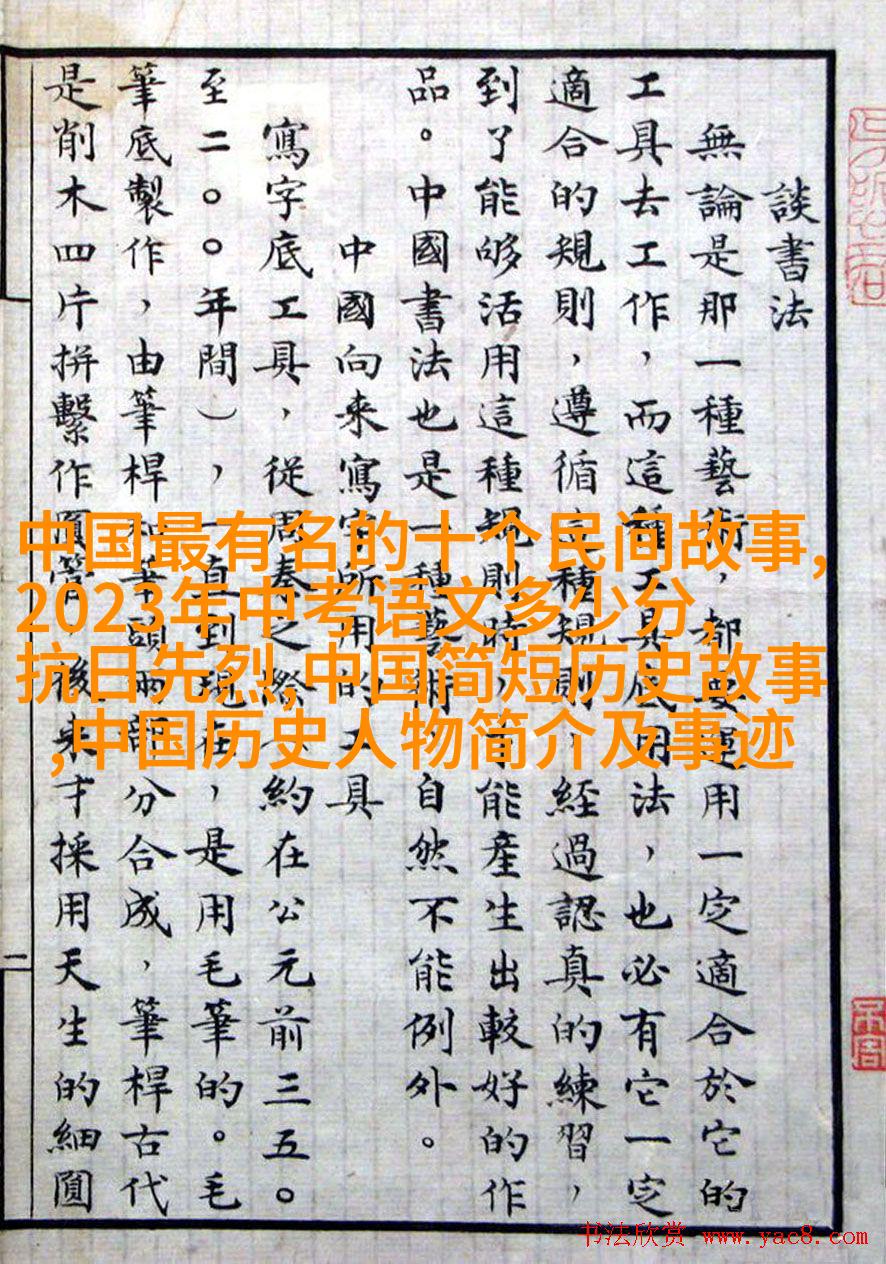 談書法
無論是那一種藝術，都要運用一定適合於它的
工具去工作，而這種工具底用法，也必有它一定
適合的規則，遵循這種規則，經過認真的練習，
到了能够活用這種規則時，才能產生出較好的作
品。中國書法也是一種藝術，自然不能例外。
中國向来寫字所用的工具
寫字底工具，從周秦之際（約在公元前三五〇
至二〇〇年間），一直到現在，是用毛筆的。毛
筆底製作，由筆桿和筆頭兩部分合成，筆桿古代
是削木四片拼繫作圓管，後来才採用天生的細圓
二
中国最有名的十个民间故事,
2023年中考语文多少分,
抗日先烈,中国简短历史故事
,中国历史人物简介及事迹
书法欣赏 www.yac8.com